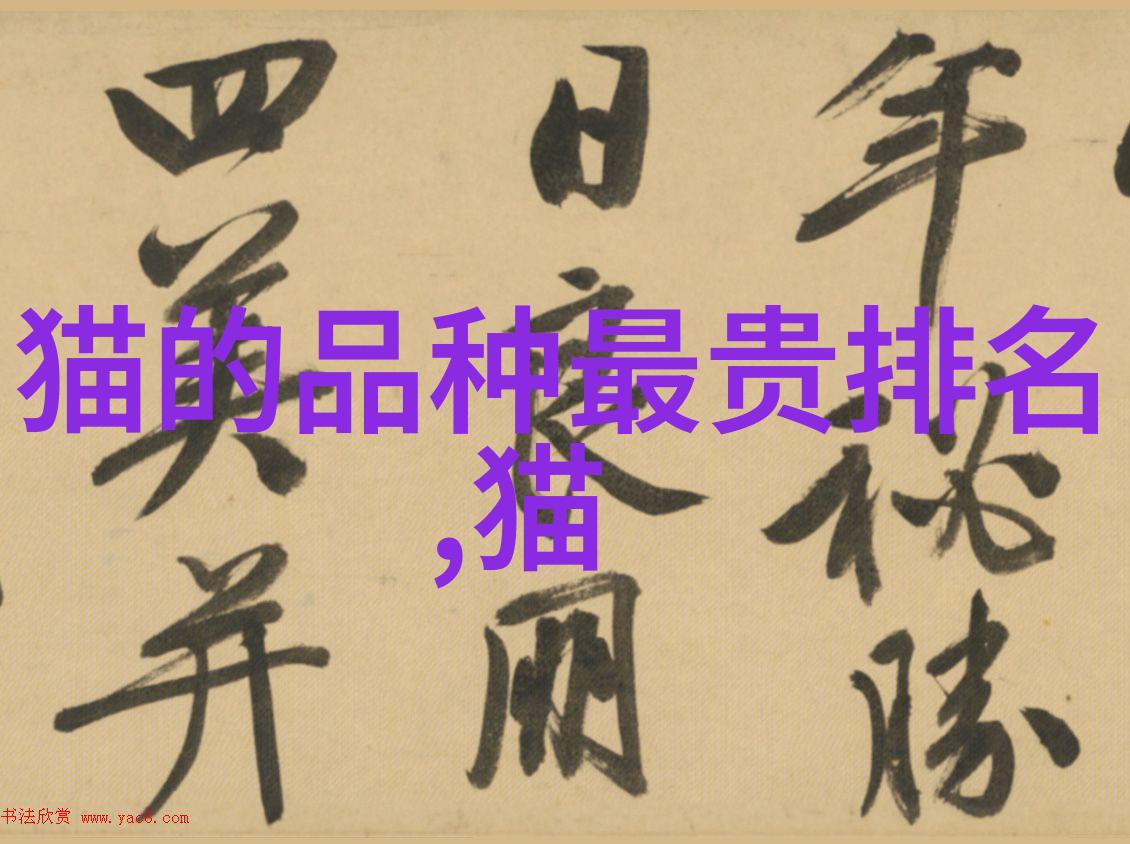 猫的品种最贵排名
,猫
年秘勝
日良朋
四美并
书法欣赏 www.yac8.com